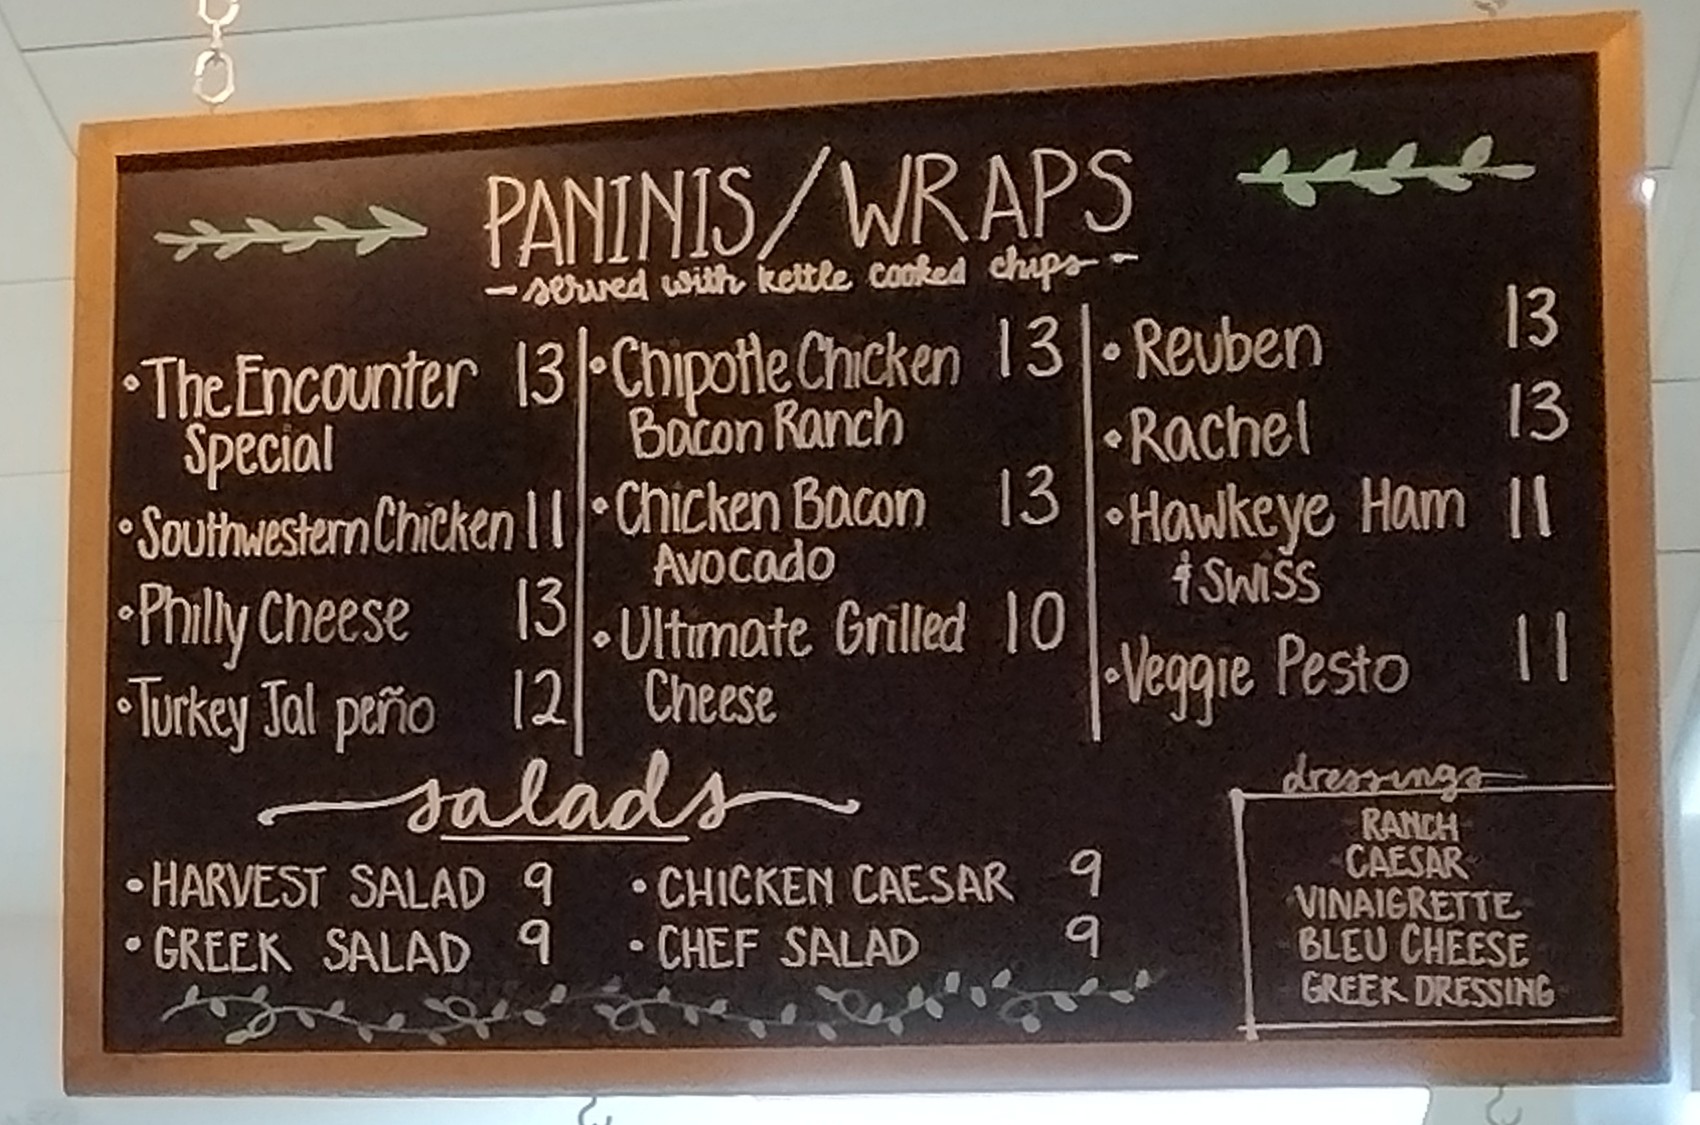 PANINIS/WRAPS
- served with kettle cooked chips -
• The Encounter 13
Special
• Southwestern Chicken 11
• Philly Cheese 13
• Turkey Jal peño 12
• Chipotle Chicken 13
Bacon Ranch
• Chicken Bacon 13
Avocado
• Ultimate Grilled 10
Cheese
• Reuben 13
• Rachel 13
• Hawkeye Ham 11
& Swiss
• Veggie Pesto 11
salads
• HARVEST SALAD 9
• GREEK SALAD 9
• CHICKEN CAESAR 9
• CHEF SALAD 9
dressings
RANCH
CAESAR
VINAIGRETTE
BLEU CHEESE
GREEK DRESSING